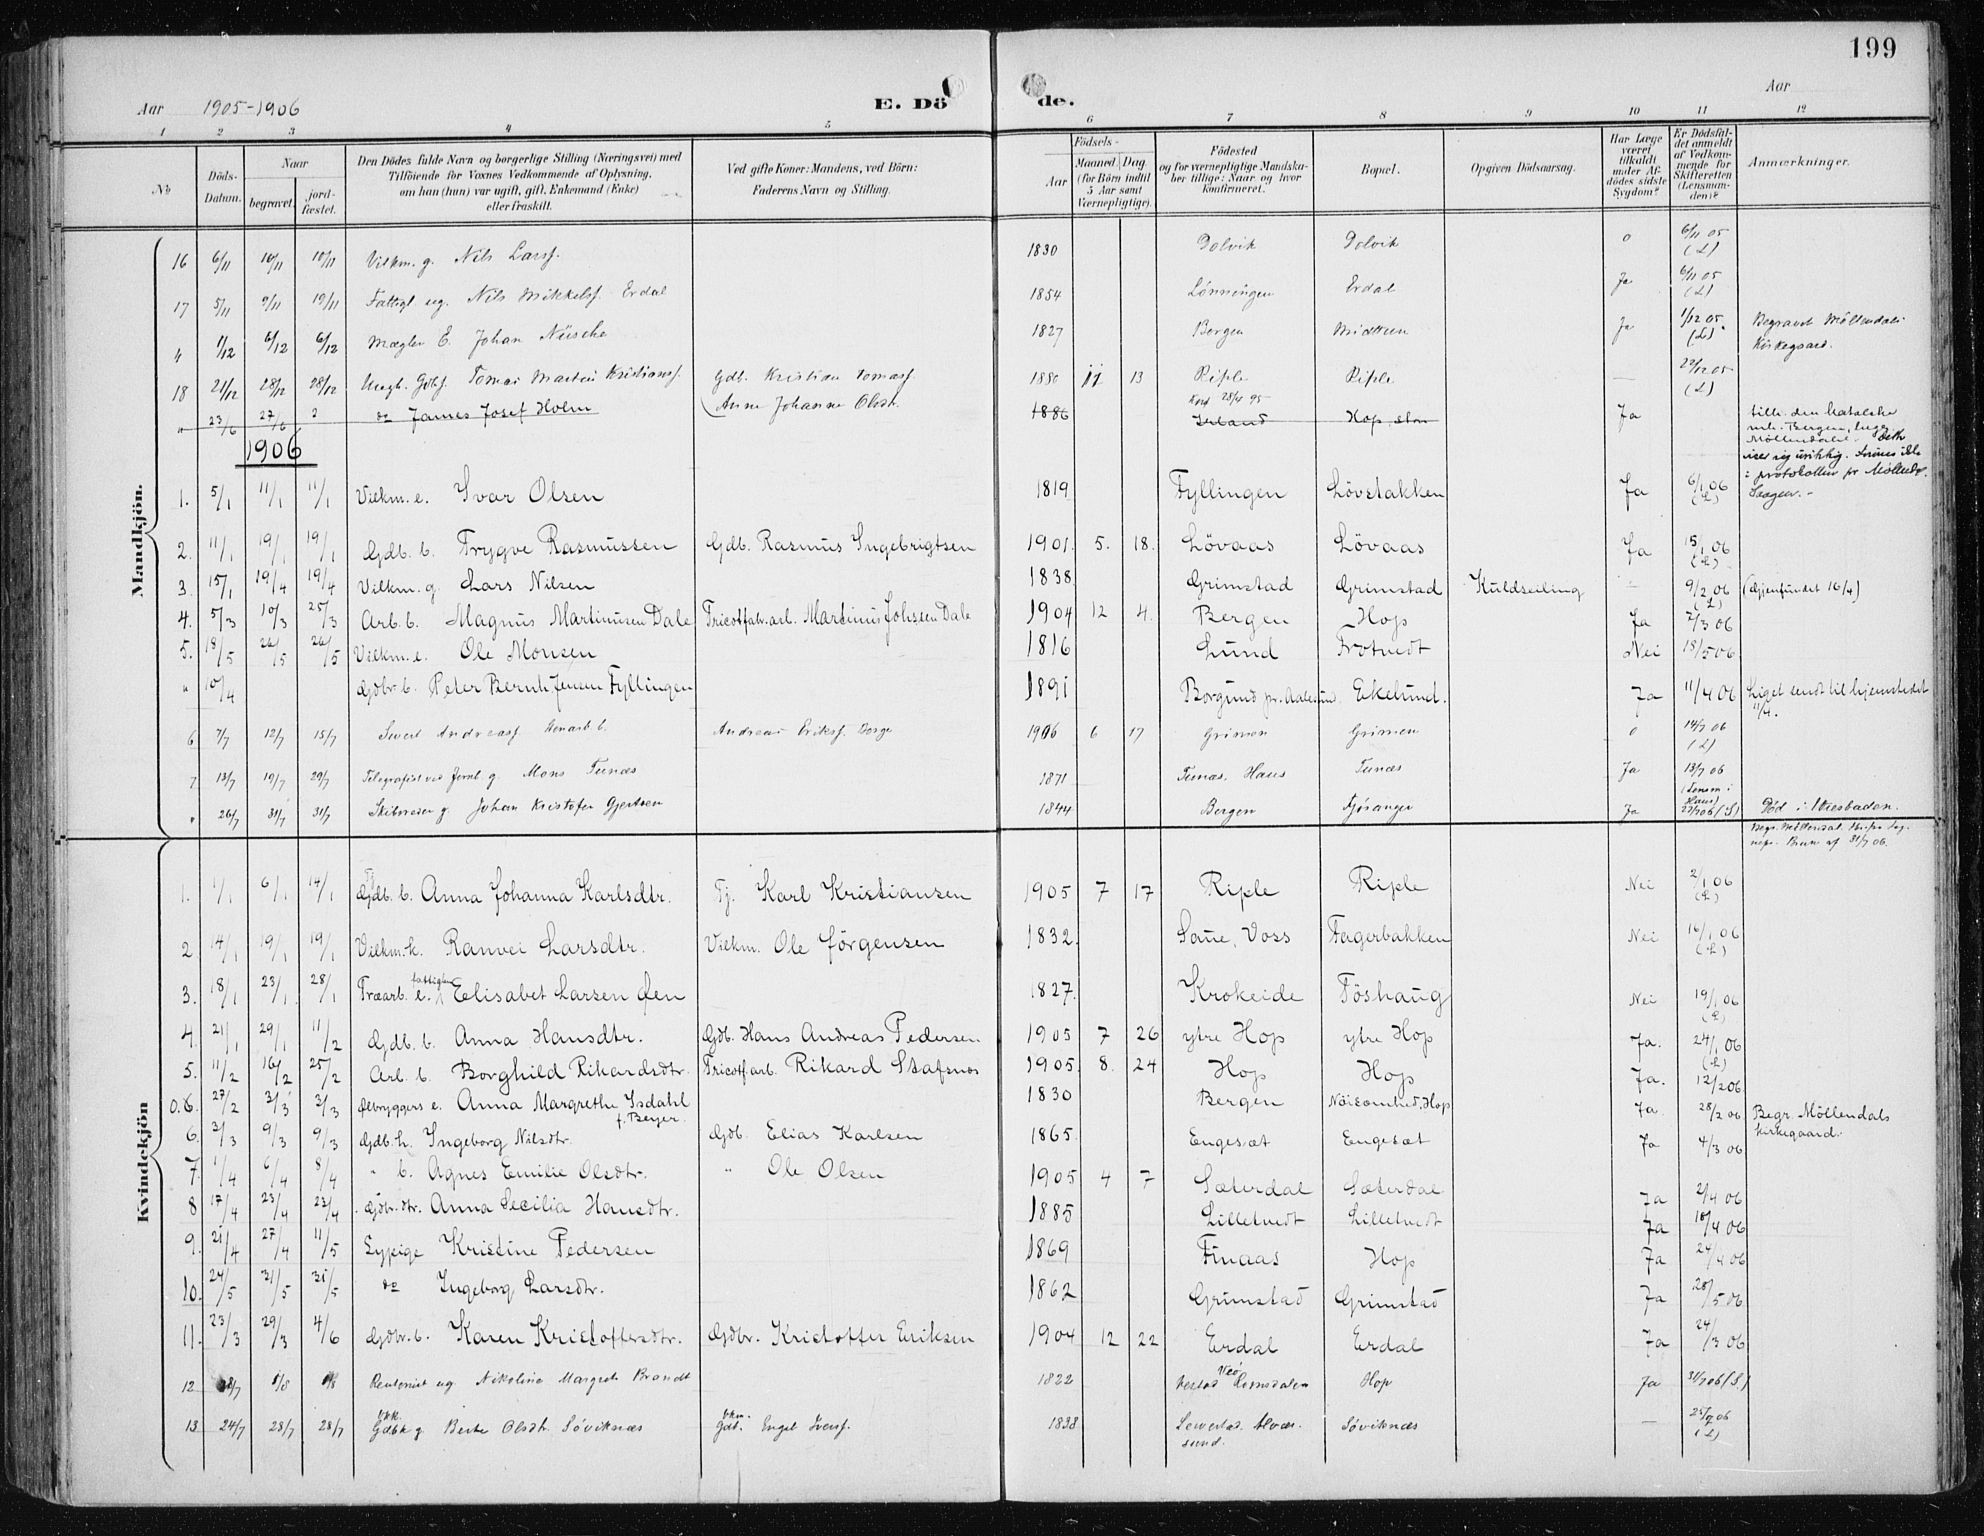 199
Aar 1905-1906 E. Dö de. Aar
1 2 3 4 5 6 7 8 9 10 11 12
No
Döds-Datum.
Naar
begravet.
jord-fæstet.
Den Dödes fulde Navn og borgerlige Stilling (Næringsvei) med
Tilföiende for Voxnes Vedkommende af Oplysning,
om han (hun) var ugift, gift, Enkemand (Enke)
eller fraskilt.
Ved gifte Koner: Mandens, ved Börn:
Faderens Navn og Stilling.
Födsels-
Aar
Maaned Dag
(for Börn indtil
5 Aar samt
Værnepligtige).
Födested
og for værnepligtige Mandska-
ber tillige: Naar og hvor
konfirmeret.
Bopæl.
Opgiven Dödsaarsag.
Har Læge
været
tilkaldt
under Af-
dödes sidste
Sygdom?
Er Dödsfal-
det anmeldt
af Vedkom-
mende for
Skifteretten
(Lensman-
den)?
Anmærkninger.
Mandkjön.
16 6/11 10/11 10/11 Vilkm. g. Nils Larsf. 1830 Dolvik Dolvik 0 6/11 05 (L)
17 5/11 9/11 19/11 Fattigl ug. Nils Mikkelsf. Erdal 1854 Lönningen Erdal Ja 6/11 05 (L)
" 1/12 6/12 6/12 Mægler E. Johan Nüsche 1827 Bergen Midttun Ja 1/12 05 (L) Begravet Möllendals Kirkegaard.
18 21/12 28/12 28/12 Ungk. Gdbf. Tomas Martin Kristiansf. Gdb. Kristian Tomasf. 1880 11 13 Riple Riple — 22/12 05 (L)
Anne Johanne Olsdt.
" 23/6 27/6 do James Josef Holm 1886 Irland Hop, Ja
1906
1. 5/1 11/1 11/1 Vilkm. e. Ivar Olsen 1819 Fyllingen Lövstakken Ja 6/1 06 (L)
2. 11/1 19/1 19/1 Gdb. b. Trygve Rasmussen Gdb. Rasmus Ingebrigtsen 1901. 5. 18. Lövaas Lövaas Ja 15/1 06 (L)
3. 15/1 19/4 19/4 Vilkm. g. Lars Nilsen 1838 Grimstad Grimstad Kuldseiling - 9/2 06 (L) (Gjenfundet 16/4)
4. 5/3 10/3 25/3 Arb. b. Magnus Martinusen Dale Tricotfabr.arb. Martinus Johsen Dale 1904 12 4. Bergen Hop Ja 7/3 06
5. 18/5 26/5 26/5 Vilkm. e. Ole Monsen 1816 Lund Trotvedt Nei 18/5 06
" 10/4 Gdbr. b. Peter Bernh Jensen Fyllingen 1891 Borgund pr. Aalesund Ekelund. Ja 11/4 06 Liget sendt til hjemstedet 11/4.
6 7/7 12/7 15/7 Sivert Andreasf. Andreas Eriksf. Borge 1906 6 17 Grimen Grimen 0 14/7 06 (L)
7 13/7 19/7 29/7 Telegrafist ved Jernb g. Mons Tunæs 1871 Tunæs, Haus Tunæs Ja 13/7 06 (Lensm i Haus)
" 26/7 31/7 31/7 Skibsreder g. Johan Kristofer Gjertsen 1844 Bergen Fjösanger Ja 27/7 06 (S) Död i Wiesbaden.
Kvindekjön
1. 1/1 6/1 14/1 Gdb. b. Anna Johanna Karlsdtr. Tj. Karl Kristiansen 1905 7 17 Riple Riple Nei 2/1 06 (L)
2 14/1 19/1 19/1 Vilkm. k. Ranvei Larsdtr. Vilkm. Ole Jörgensen 1832. Saue, Voss Fagerbakken Nei 16/1 06 (L)
3. 18/1 23/1 28/1 Træarb. e. fattiglem Elisabet Larsen Öen 1827. Krokeide Töshaug Nei 19/1 06 (L)
4. 21/1 29/1 11/2 Gdb. b. Anna Hansdtr. Gdb. Hans Andreas Pedersen 1905 7 26 ytre Hop ytre Hop Ja. 24/1 06 (L)
5. 11/2 16/2 25/2 Arb. b. Borghild Rikardsdtr. Tricotf.arb. Rikard Stafsnæs 1905. 8. 24 Hop Hop Ja. 12/2 06
0.6. 27/2 3/3 3/3 Ölbryggers e. Anna Margrethe Isdahl f. Beyer. 1830 Bergen Nöisomhed, Hop Ja. 28/2 06 Begr. Möllendals kirkegaard.
6. 2/3 9/3 9/3 Gdb. h. Ingeborg Nilsdtr. Gdb. Elias Karlsen 1865. Engesæt Engesæt Ja 4/3 06
7. 1/4 6/4 8/4 " b. Agnes Emilie Olsdtr. " Ole Olsen 1905 4 7 Sæterdal Sæterdal Ja 2/4 06
8 17/4 23/4 23/4 Gdbr. dtr. Anna Cecilia Hansdtr. 1885 Lilletvedt Lilletvedt Ja 18/4 06
9. 21/4 27/4 11/5 Sypige Kristine Pedersen 1869 Finaas Hop Ja 24/4 06
10. 24/5 31/5 31/5 do Ingeborg Larsdtr. 1862 Grimstad Grimstad Ja 28/5 06
11. 23/3 29/3 4/6 Gdbr. b. Karen Kristoffersdtr. Gdbr. Kristoffer Eriksen 1904 12 22 Erdal Erdal Ja 24/3 06
12 Rentenist ug Nikoline Margrete Brandt 1822 Veö Romsdalen Hop Ja 31/7 06 (S.)
13 24/7 28/7 28/7 Gdbk g. Berte Olsdt. Söviknæs Gdb. Engel Iversf. 1838 Alvær-sund. Söviknæs — 25/7 06 (L)